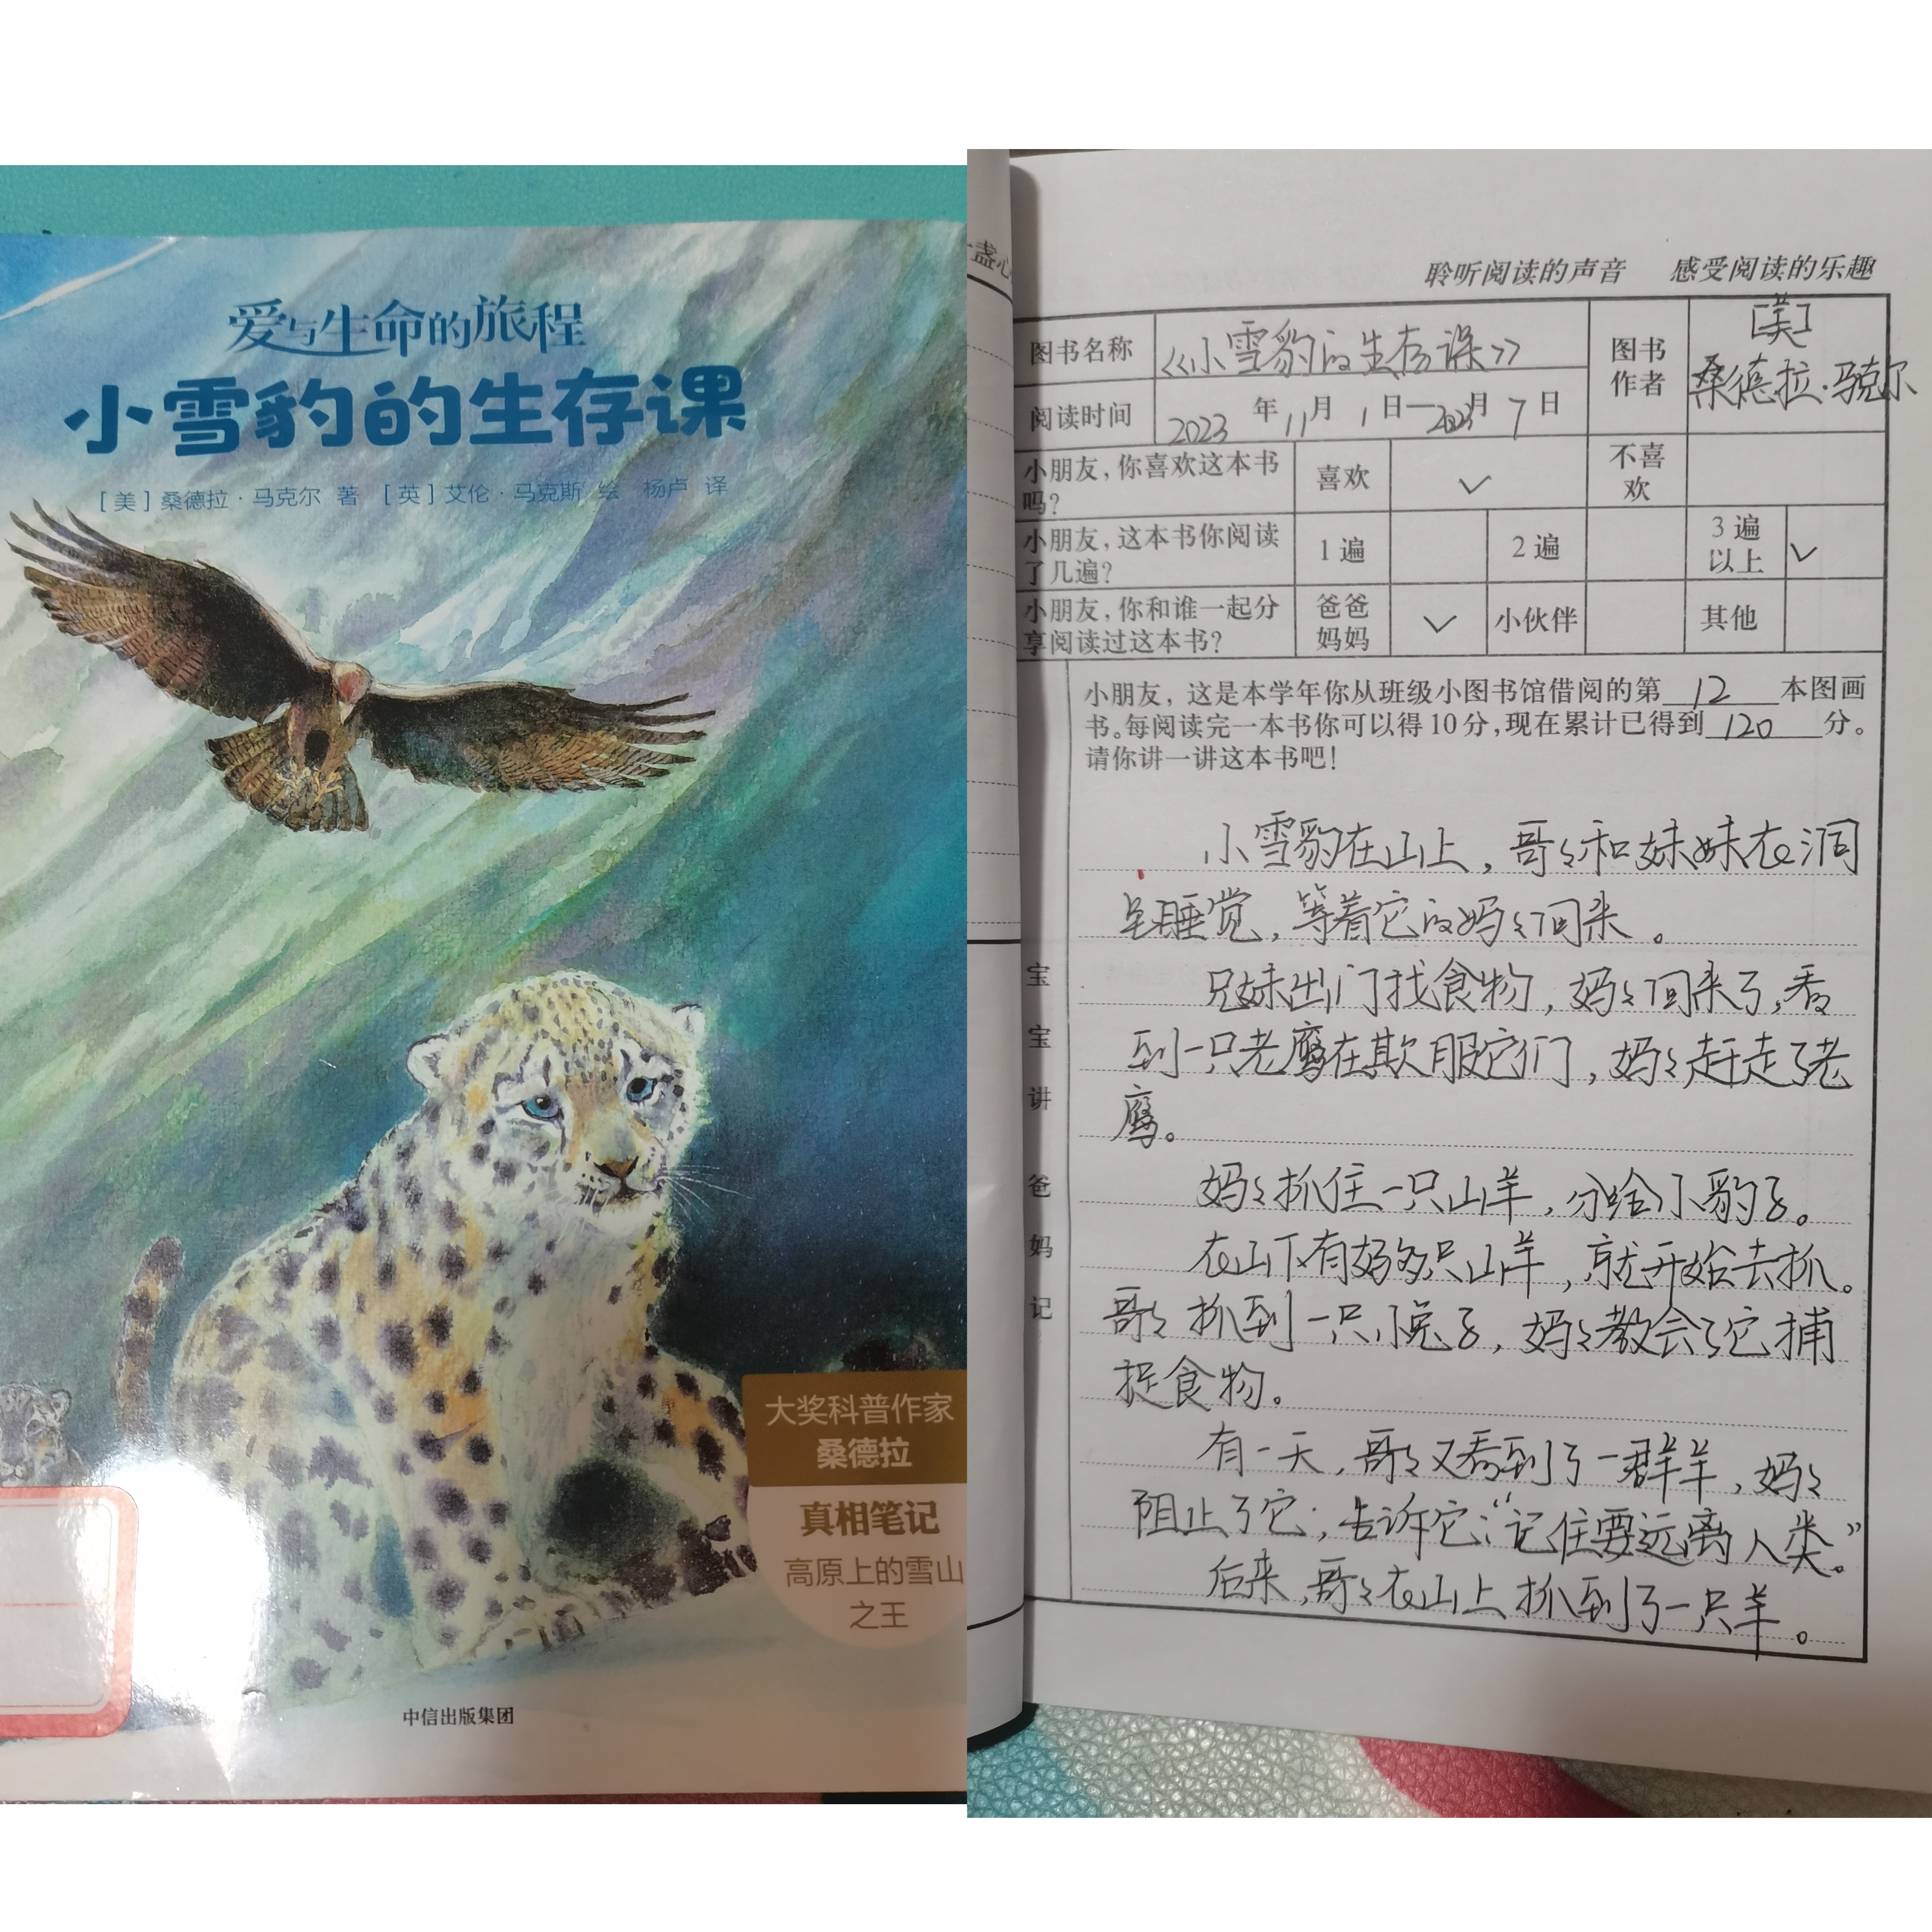 爱与生命的旅程
小雪豹的生存课
[美]桑德拉·马克尔 著 [英]艾伦·马克斯 绘 杨卢 译
大奖科普作家
桑德拉
真相笔记
高原上的雪山
之王
中信出版集团
一盏心
聆听阅读的声音 感受阅读的乐趣
图书名称 《小雪豹的生存课》 图书作者 [美]桑德拉·马克尔
阅读时间 2023年11月1日—2023月7日
小朋友,你喜欢这本书吗? 喜欢 ✓ 不喜欢
小朋友,这本书你阅读了几遍? 1遍 2遍 3遍以上 ✓
小朋友,你和谁一起分享阅读过这本书? 爸爸妈妈 ✓ 小伙伴 其他
小朋友,这是本学年你从班级小图书馆借阅的第12本图画
书。每阅读完一本书你可以得10分,现在累计已得到120分。
请你讲一讲这本书吧!
宝宝讲 爸妈记
小雪豹在山上,哥々和妹妹在洞
里睡觉,等着它的妈々回来。
兄妹出门找食物,妈々回来了,看
到一只老鹰在欺服它们,妈々赶走了老
鹰。
妈々抓住一只山羊,分给小豹子。
在山下有好多只山羊,就开始去抓。
哥々抓到一只小兔子,妈々教会了它捕
捉食物。
有一天,哥々又看到了一群羊,妈々
阻止了它;告诉它:“记住要远离人类。”
后来,哥々在山上抓到了一只羊。